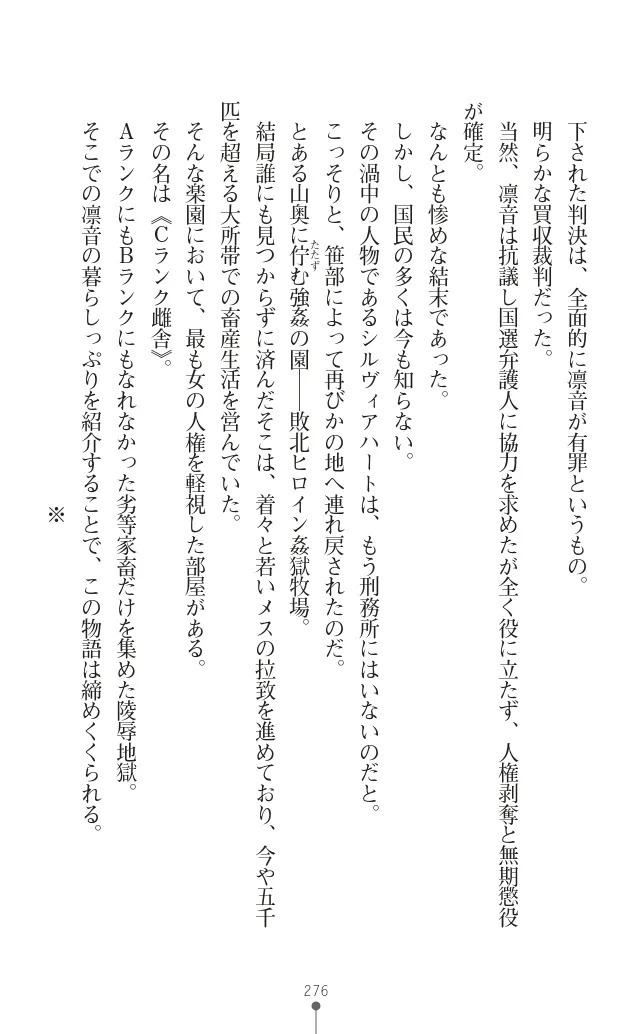 下された判決は、全面的に凛音が有罪というもの。
明らかな買収裁判だった。
当然、凛音は抗議し国選弁護人に協力を求めたが全く役に立たず、人権剥奪と無期懲役
が確定。
なんとも惨めな結末であった。
しかし、国民の多くは今も知らない。
その渦中の人物であるシルヴィアハートは、もう刑務所にはいないのだと。
こっそりと、笹部によって再びかの地へ連れ戻されたのだ。
とある山奥に佇む強姦の園――敗北ヒロイン姦獄牧場。
たたず
結局誰にも見つからずに済んだそこは、着々と若いメスの拉致を進めており、今や五千
匹を超える大所帯での畜産生活を営んでいた。
そんな楽園において、最も女の人権を軽視した部屋がある。
その名は《Cランク雌舎》。
AランクにもBランクにもなれなかった劣等家畜だけを集めた陵辱地獄。
そこでの凛音の暮らしっぷりを紹介することで、この物語は締めくくられる。
※
276